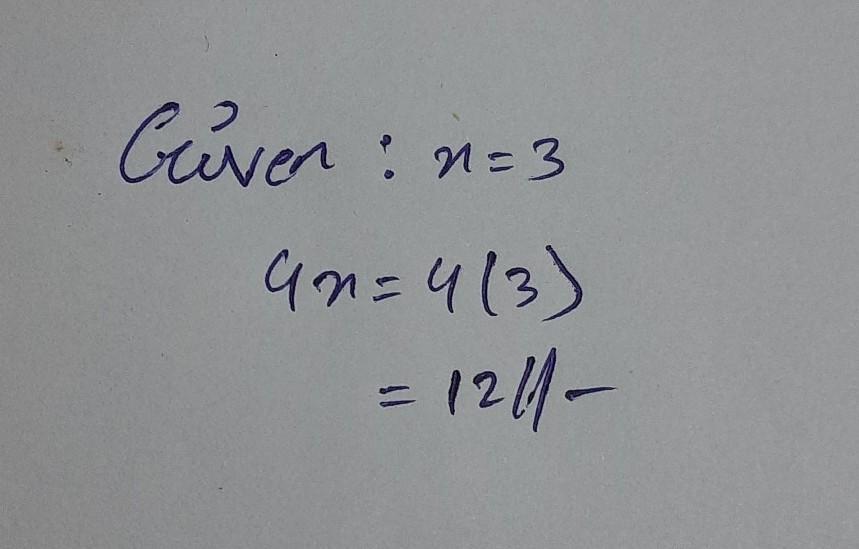 Given : x = 3
4x = 4(3)
= 12//-